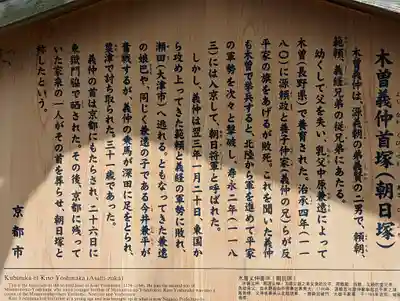 木曽義仲首塚(朝日塚)
木曽義仲は、源義朝の弟義賢の二男で、頼朝、
範頼、義経兄弟の従兄弟にあたる。
幼くして父を失い、乳父中原兼遠によって
木曽(長野県)で養育された。治承四年(一一
八〇)に源頼政と養子仲家(義仲の兄)らが反
平家の旗をあげるが敗死。これを聞いた義仲
も木曽で挙兵すると、北陸から軍を進めて平家
の軍勢を次々と撃破し、寿永二年(一一八
三)には入京して、朝日将軍と呼ばれた。
しかし、義仲は翌三年一月二十日、東国か
ら攻め上ってきた範頼と義経の軍勢に敗れ、
瀬田(大津市)へ逃れる。ともなってきた兼遠
の娘巴や、同じく兼遠の子である今井兼平が
奮戦するが、義仲の乗馬が深田に足をとられ、
粟津で討ち取られた。三十一歳であった。
義仲の首は京都にもたらされ、二十六日に
東獄門脇で晒された。その後、京都に残って
いた家来の一人がその首を葬らせ、朝日塚と
称したという。
京都市
Kubizuka of Kiso Yoshinaka (Asahi-zuka)